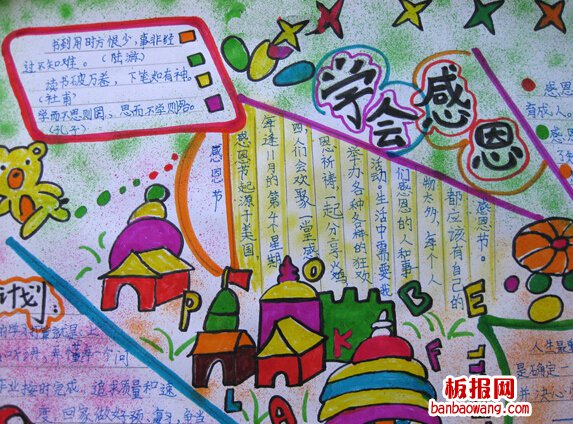 书到用时方恨少,事非经
过不知难。(陆游)
读书破万卷,下笔如有神。
(杜甫)
学而不思则罔、思而不学则殆。
(孔子)
学会感恩
感恩节
感恩节起源于美国,
每逢11月的第4个星期
四人们会欢聚一堂感
恩祈祷,一起分享火鸡
举办各种各样的狂欢
活动。生活中需要我
们感恩的人和事
物太多,每个人
都应该有自己的
感恩节。
感恩
有成人。
感恩
计划
业按时完成,追求质量和速
度,回家做好预、复习,
人生最
是确定一
并决心
P
L
O
B
E
K
F
A
板报网
banbaowang.com